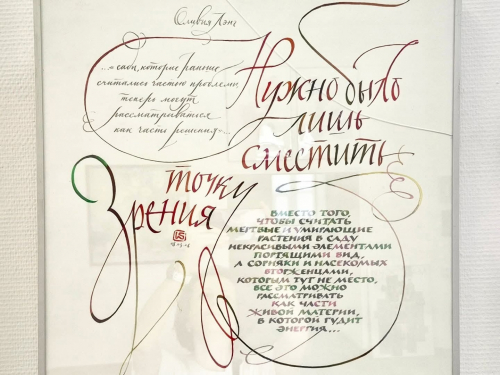 Оливия Лэнг
"...и сады, которые раньше
считались частью проблемы
теперь могут
рассматриваться
как часть решения"...
Нужно было
лишь
сместить
точку
зрения
Вместо того,
чтобы считать
мертвые и умирающие
растения в саду
некрасивыми элементами
портящими вид,
а сорняки и насекомых
вторженцами,
которым тут не место,
все это можно
рассматривать
как части
живой материи,
в которой гудит
энергия...